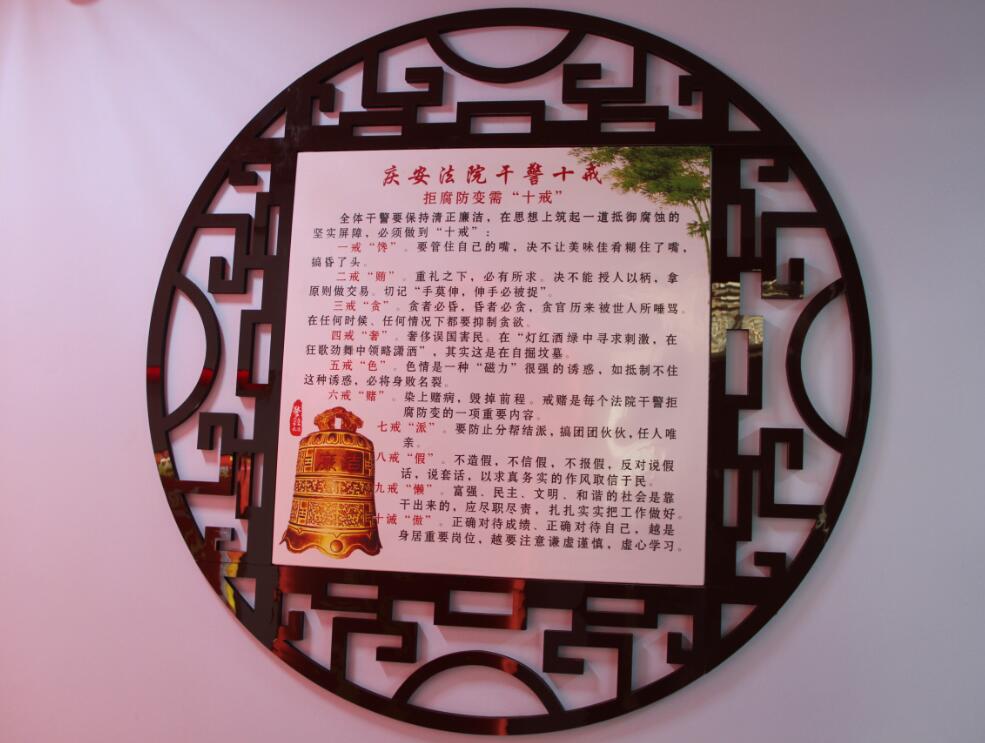 庆安法院干警十戒
拒腐防变需“十戒”
全体干警要保持清正廉洁，在思想上筑起一道抵御腐蚀的
坚实屏障，必须做到“十戒”：
一戒“馋”。要管住自己的嘴，决不让美味佳肴糊住了嘴，
搞昏了头。
二戒“贿”。重礼之下，必有所求。决不能授人以柄，拿
原则做交易。切记“手莫伸，伸手必被捉”。
三戒“贪”。贪者必昏，昏者必贪，贪官历来被世人所唾骂。
在任何时候、任何情况下都要抑制贪欲。
四戒“奢”。奢侈误国害民。在“灯红酒绿中寻求刺激，在
狂歌劲舞中领略潇洒”，其实这是在自掘坟墓。
五戒“色”。色情是一种“磁力”很强的诱惑，如抵制不住
这种诱惑，必将身败名裂。
六戒“赌”。染上赌病，毁掉前程。戒赌是每个法院干警拒
腐防变的一项重要内容。
七戒“派”。要防止分帮结派，搞团团伙伙，任人唯
亲。
八戒“假”。不造假，不信假，不报假，反对说假
话，说套话，以求真务实的作风取信于民。
九戒“懒”。富强、民主、文明、和谐的社会是靠
干出来的，应尽职尽责，扎扎实实把工作做好。
十诫“傲”。正确对待成绩、正确对待自己，越是
身居重要岗位，越要注意谦虚谨慎，虚心学习。
廉洁